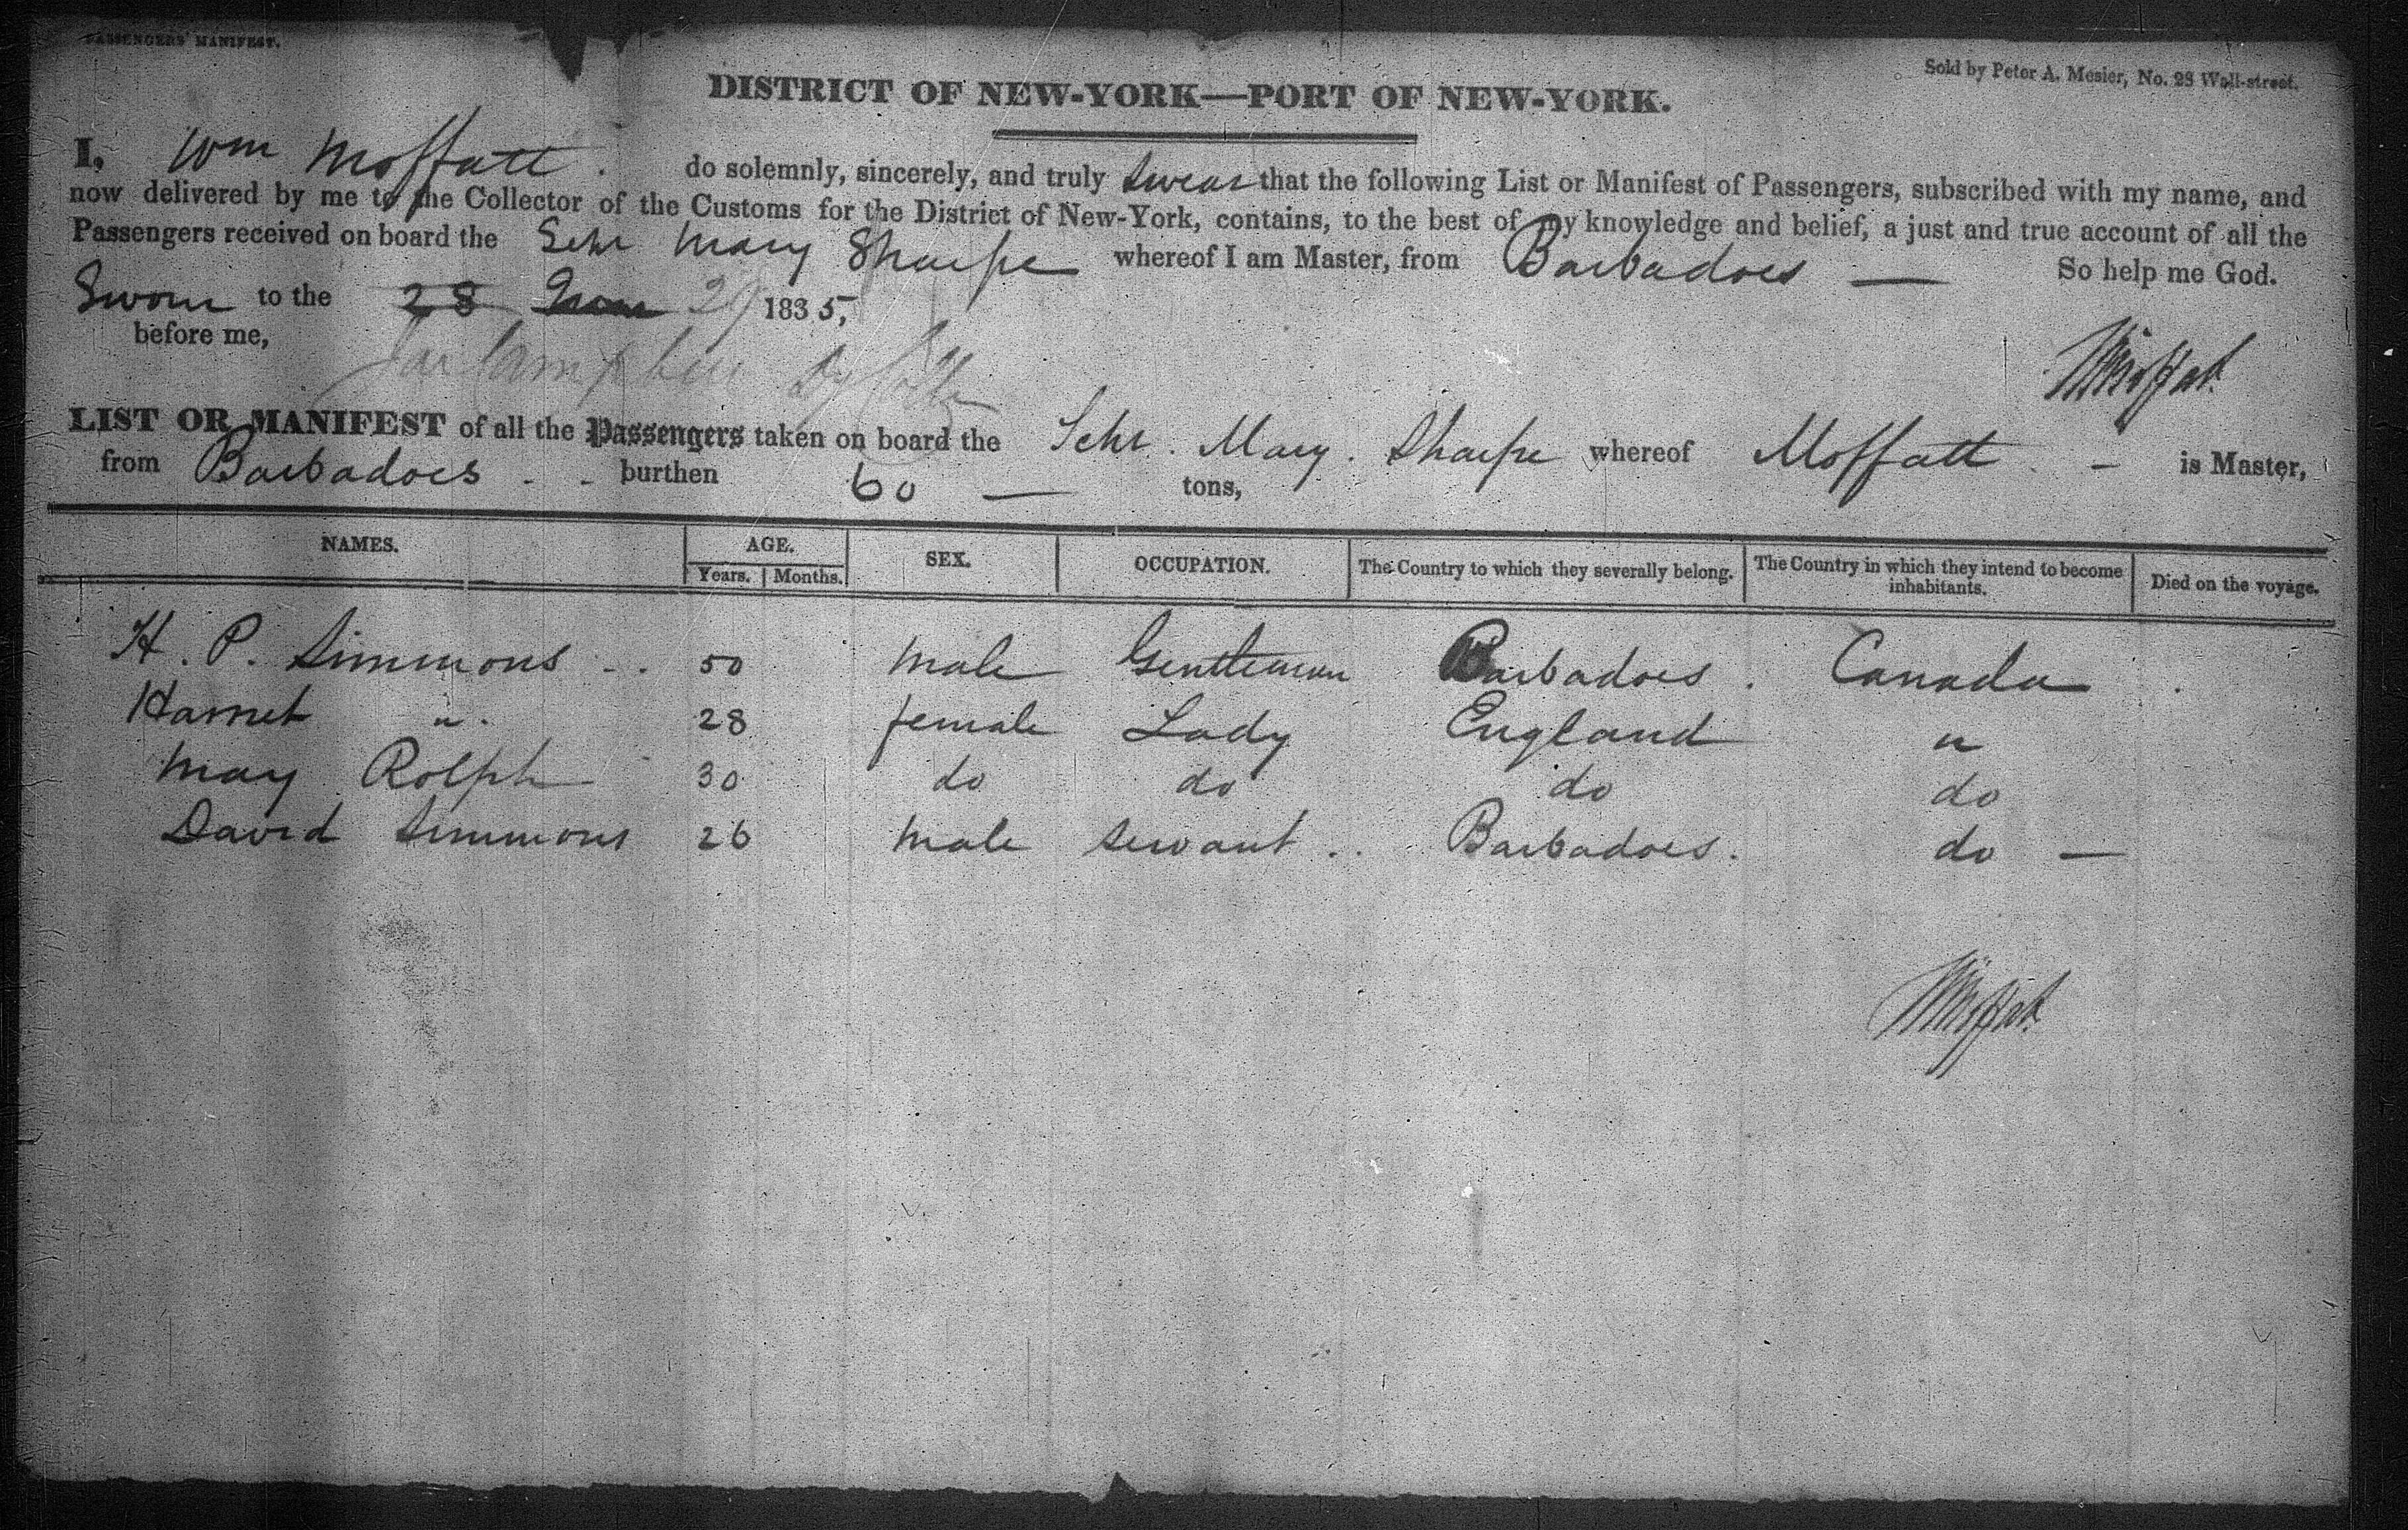 PASSENGERS' MANIFEST.
Sold by Peter A. Mesier, No. 28 Wall-street.
DISTRICT OF NEW-YORK—PORT OF NEW-YORK.
I, Wm Moffatt. do solemnly, sincerely, and truly swear that the following List or Manifest of Passengers, subscribed with my name, and
now delivered by me to the Collector of the Customs for the District of New-York, contains, to the best of my knowledge and belief, a just and true account of all the
Passengers received on board the Schr Mary Sharpe whereof I am Master, from Barbadoes — So help me God.
Sworn to the 28 June 29 1835,
before me,
WMoffat
LIST OR MANIFEST of all the Passengers taken on board the Schr. Mary. Sharpe whereof Moffatt - is Master,
from Barbadoes - - burthen 60 — tons,
NAMES. AGE. SEX. OCCUPATION. The Country to which they severally belong. The Country in which they intend to become inhabitants. Died on the voyage.
Years. Months.
H. P. Simmons 50 male Gentleman Barbadoes. Canada
Harriet " 28 female Lady England "
Mary Rolph 30 do do do do
David Simmons 26 male servant Barbadoes. do —
WMoffat